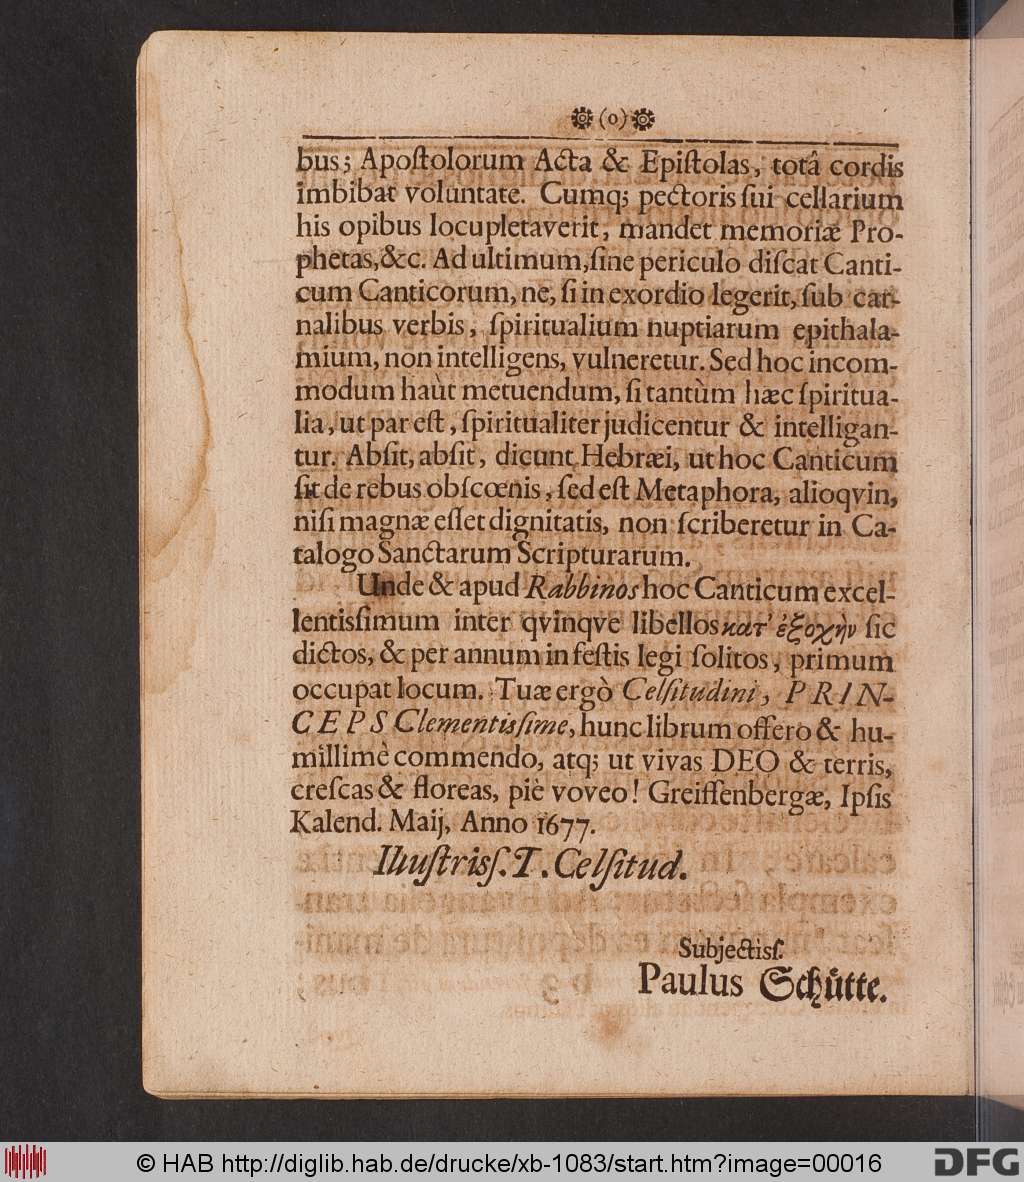 (o)
bus; Apoſtolorum Acta & Epiſtolas, totâ cordis
imbibat voluntate. Cumq; pectoris ſui cellarium
his opibus locupletaverit, mandet memoriæ Pro-
phetas,&c. Ad ultimum,ſine periculo diſcat Canti-
cum Canticorum, ne, ſi in exordio legerit, ſub car-
nalibus verbis, ſpiritualium nuptiarum epithala-
mium, non intelligens, vulneretur. Sed hoc incom-
modum haùt metuendum, ſi tantùm hæc ſpiritua-
lia, ut par eſt, ſpiritualiter judicentur & intelligan-
tur. Abſit, abſit, dicunt Hebræi, ut hoc Canticum
ſit de rebus obſcœnis, ſed eſt Metaphora, alioqvin,
niſi magnæ eſſet dignitatis, non ſcriberetur in Ca-
talogo Sanctarum Scripturarum.
Unde & apud Rabbinos hoc Canticum excel-
lentisſimum inter qvinqve libellos κατ' ἐξοχὴν ſic
dictos, & per annum in feſtis legi ſolitos, primum
occupat locum. Tuæ ergò Celſitudini, PRIN-
CEPS Clementisſime, hunc librum offero & hu-
millimè commendo, atq; ut vivas DEO & terris,
creſcas & floreas, piè voveo! Greiffenbergæ, Ipſis
Kalend. Maij, Anno 1677.
Illuſtrisſ. T. Celſitud.
Subjectisſ.
Paulus Schütte.
© HAB http://diglib.hab.de/drucke/xb-1083/start.htm?image=00016
DFG